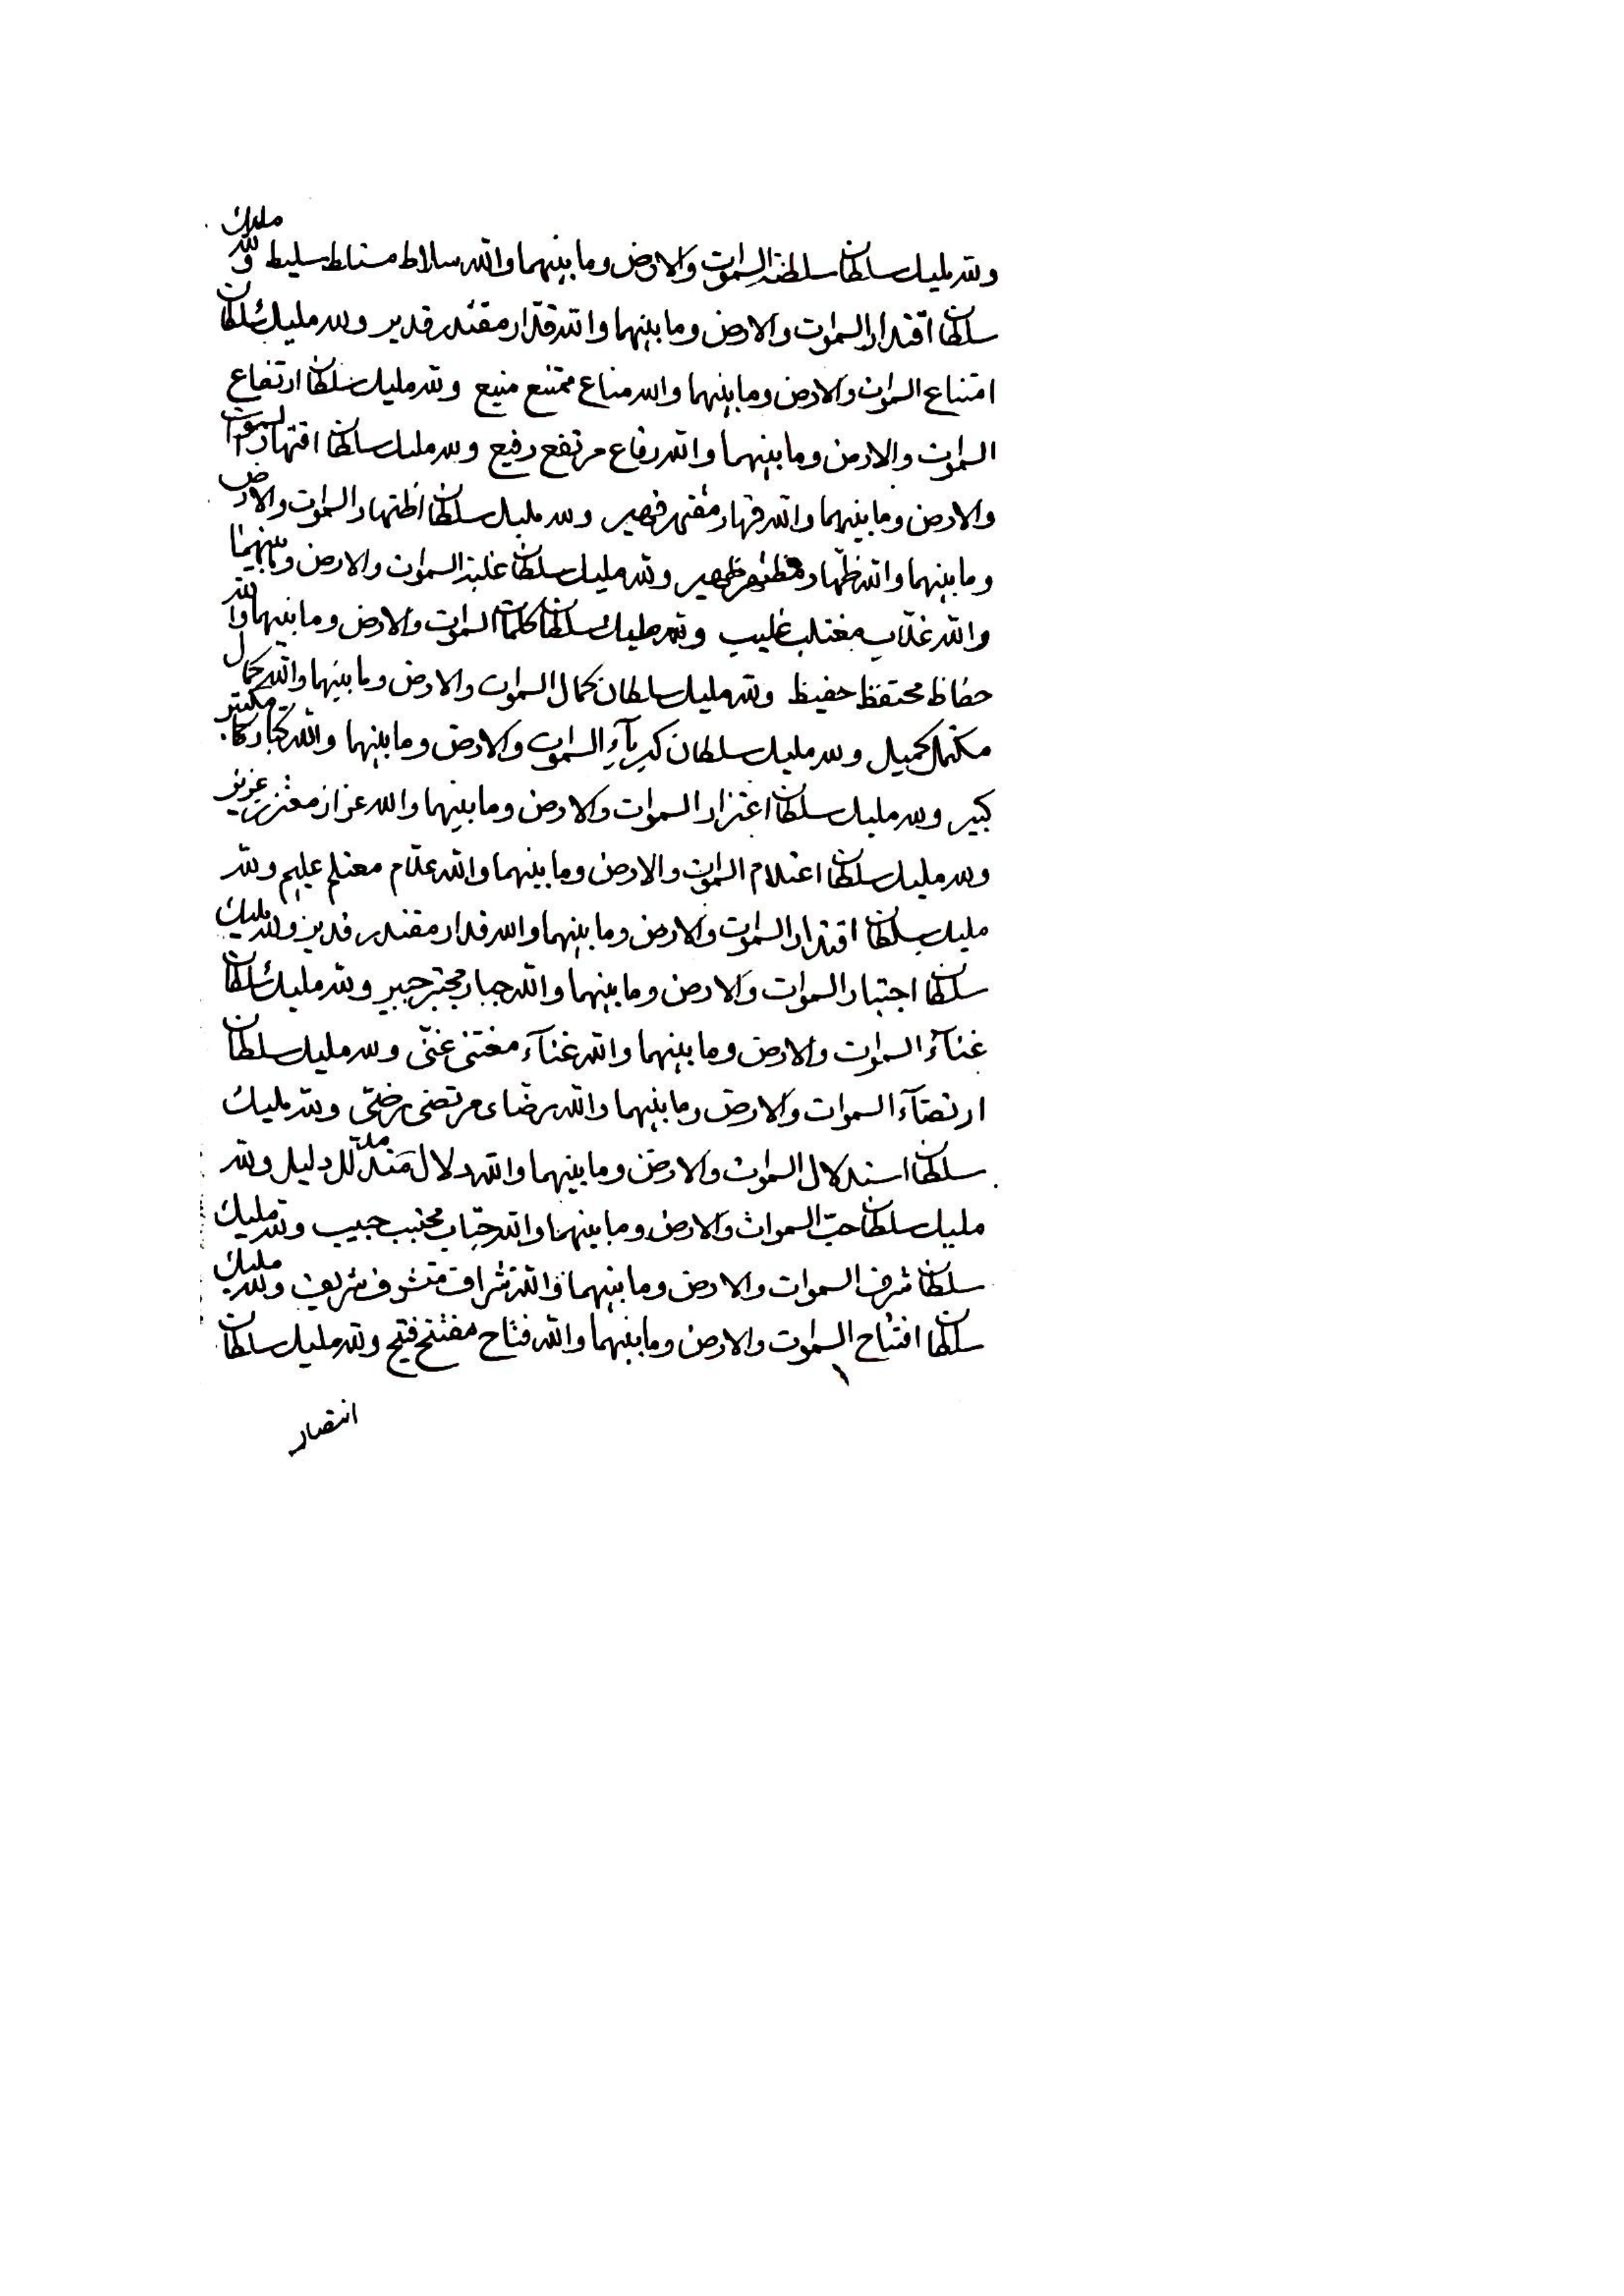 ولله مليك سلطان سلطنة السموات والارض وما بينهما والله سلاط مستلط سليط ولله مليك
سلطان اقتدار السموات والارض وما بينهما والله قدّار مقتدر قدير ولله مليك سلطان
امتناع السموات والارض وما بينهما والله مناع ممتنع منيع ولله مليك سلطان ارتفاع
السموات والارض وما بينهما والله رفاع مرتفع رفيع ولله مليك سلطان اقتهار السموات
والارض وما بينهما والله قهار مقتهر قهير ولله مليك سلطان اظتهار السموات والارض
وما بينهما والله ظهّار مظتهر ظهير ولله مليك سلطان غلبة السموات والارض وما بينهما
والله غلاب مغتلب غليب ولله مليك سلطان كلمات السموات والارض وما بينهما والله
حفاظ محتفظ حفيظ ولله مليك سلطان كمال السموات والارض وما بينهما والله كمال
مكتمل كميل ولله مليك سلطان كبريآء السموات والارض وما بينهما والله كبار مكتبر
كبير ولله مليك سلطان اعتزاز السموات والارض وما بينهما والله عزاز معتزز عزيز
ولله مليك سلطان اعتلام السموات والارض وما بينهما والله علام معتلم عليم ولله
مليك سلطان اقتدار السموات والارض وما بينهما والله قدار مقتدر قدير ولله مليك
سلطان اجتبار السموات والارض وما بينهما والله جبار مجتبر جبير ولله مليك سلطان
غنآء السموات والارض وما بينهما والله غنآء مغتنى غنىّ ولله مليك سلطان
ارتضآء السموات والارض وما بينهما والله رضاى مرتضى رضىّ ولله مليك
سلطان استدلال السموات والارض وما بينهما والله دلال دليل ولله
مليك سلطان حبّ السموات والارض وما بينهما والله حبّاب محتبب حبيب ولله مليك
سلطان شرف السموات والارض وما بينهما والله شراف متشرف شريف ولله مليك
سلطان افتتاح السموات والارض وما بينهما والله فتاح مفتتح فتيح ولله مليك سلطان
انتصار